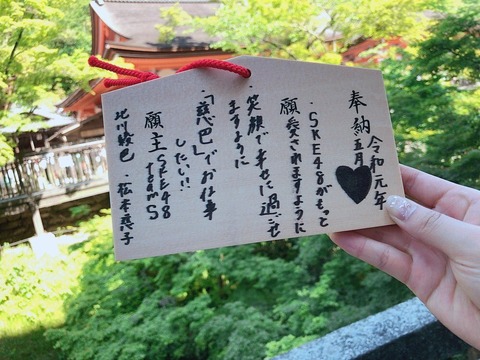 奉納 令和元年
五月
・SKE48がもっと
願 愛されますように
・笑顔で幸せに過ごせ
ますように
・「慈巴」でお仕事
したい!!
願主 SKE48
teamS
北川綾巴・松本慈子